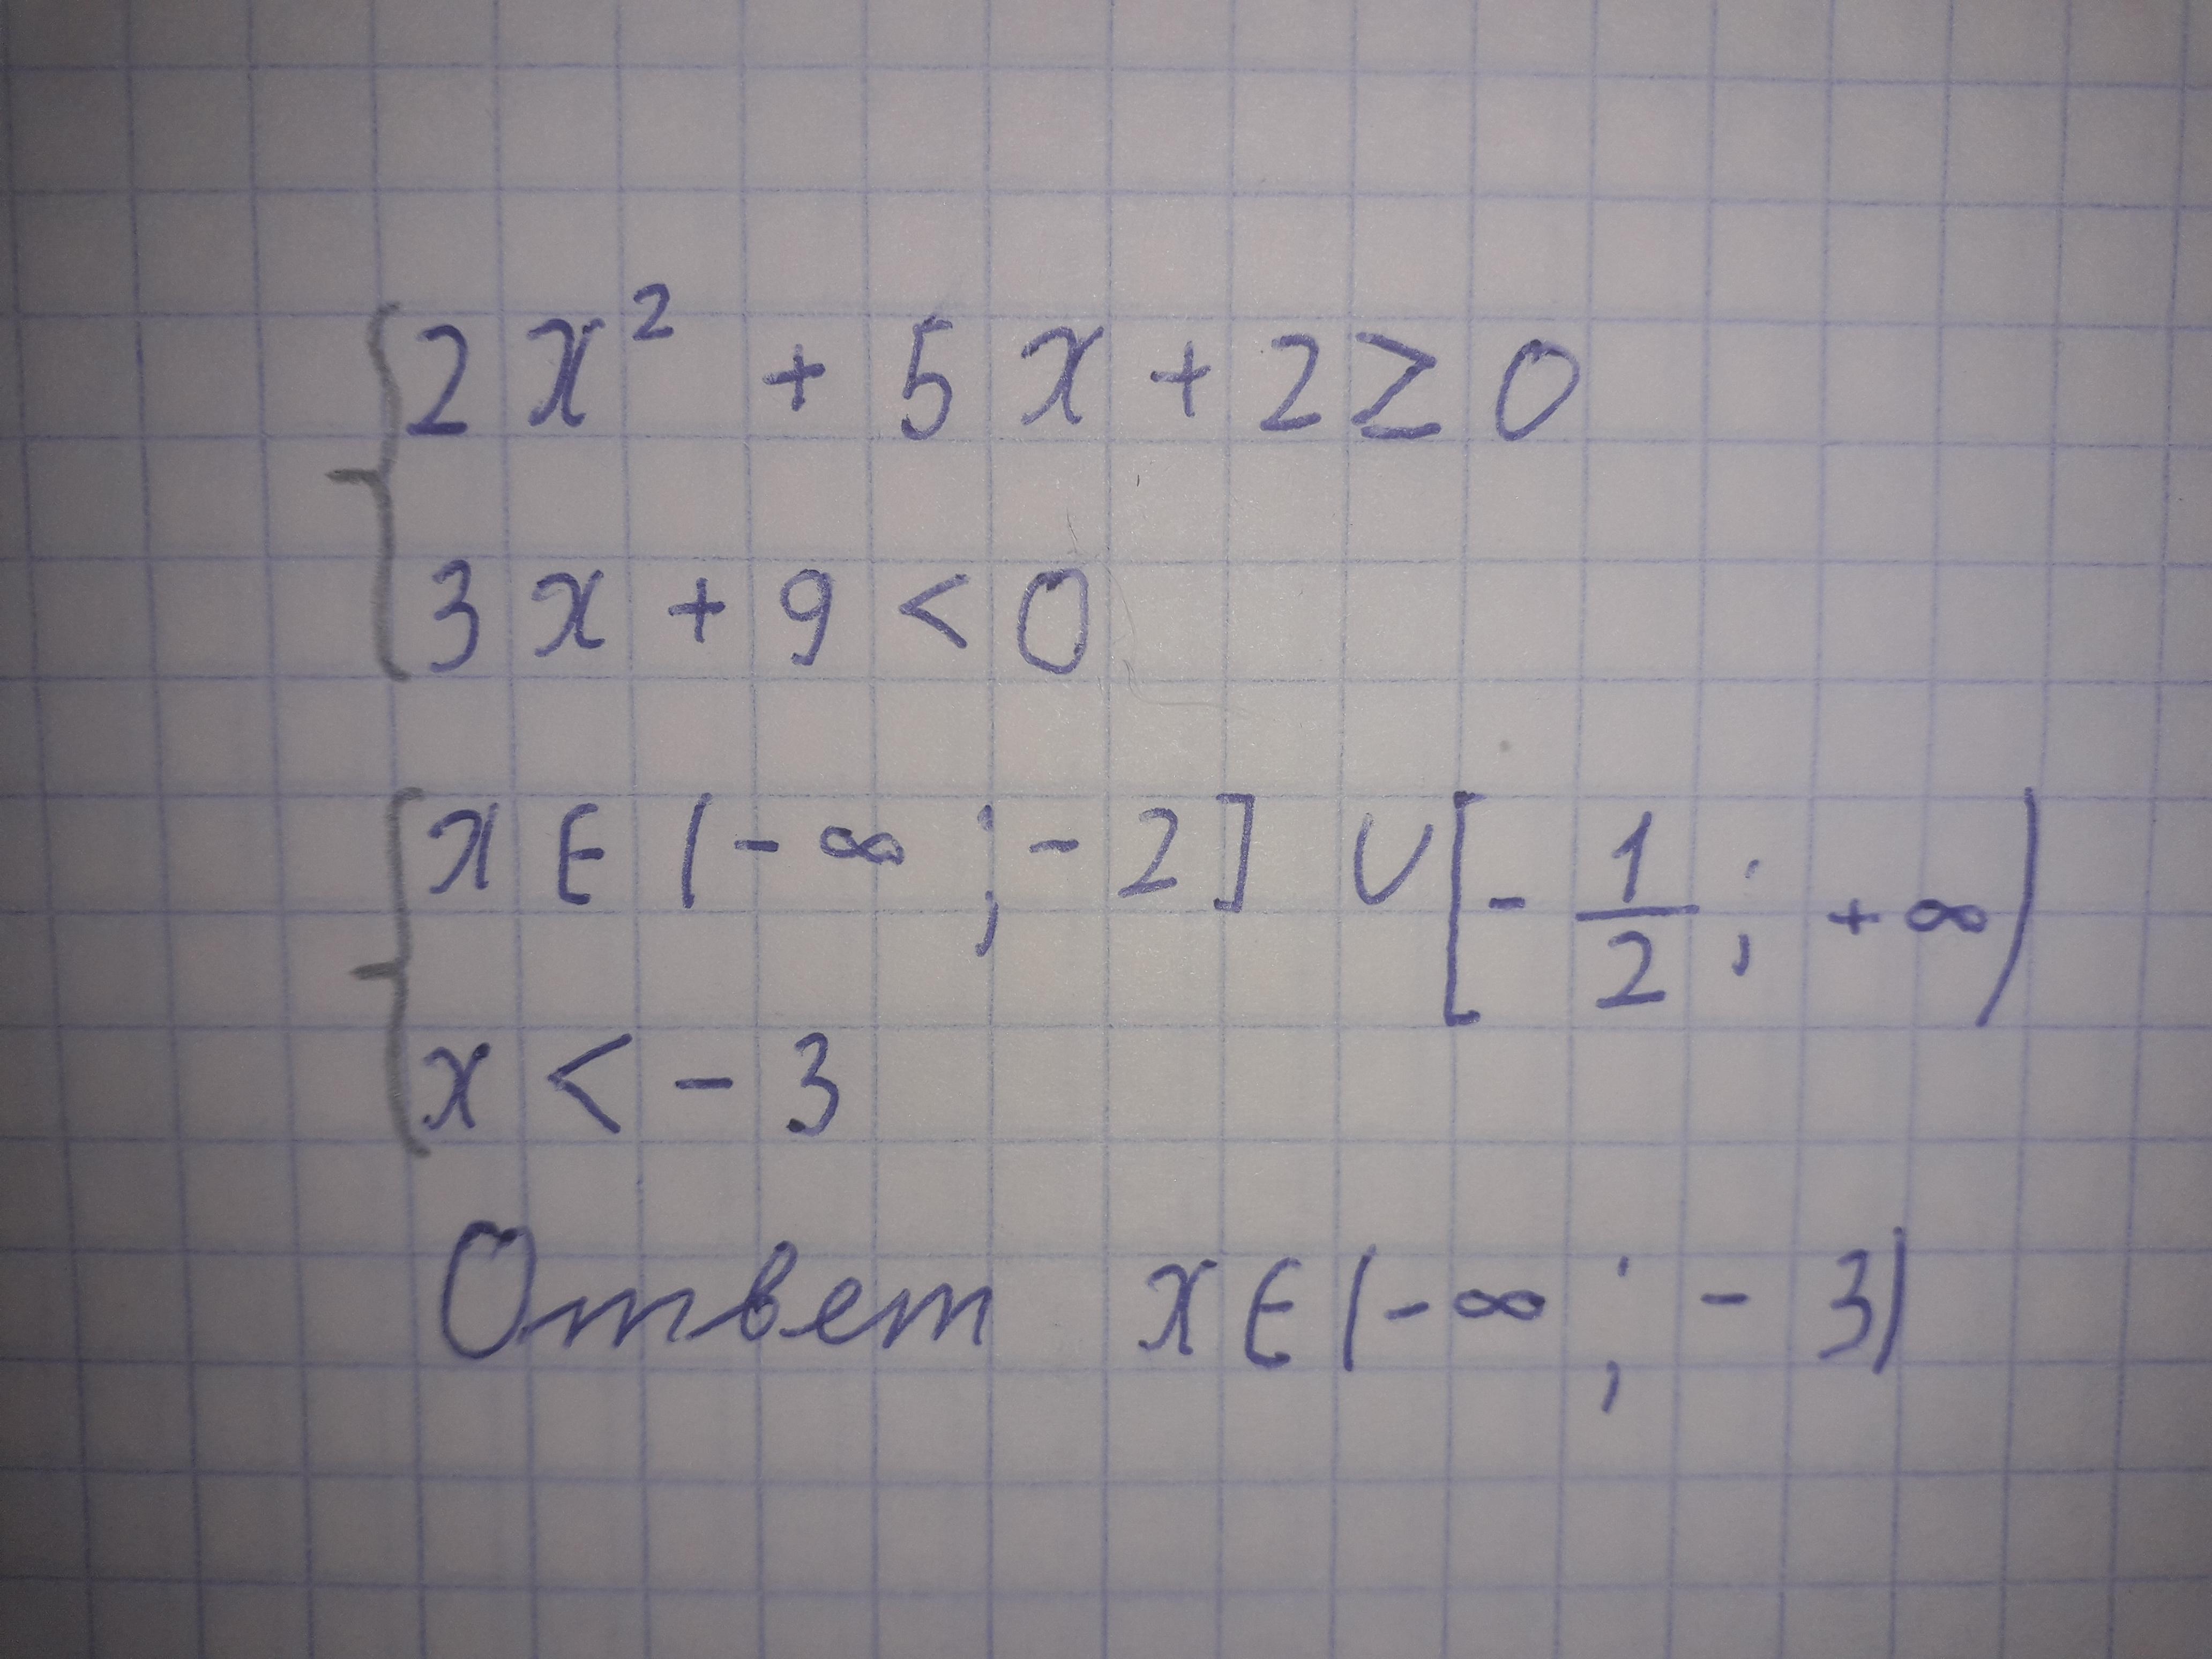 2x² + 5x + 2 ≥ 0
3x + 9 < 0
x ∈ (-∞; -2] ∪ [-1/2; +∞)
x < -3
Ответ x ∈ (-∞; -3)